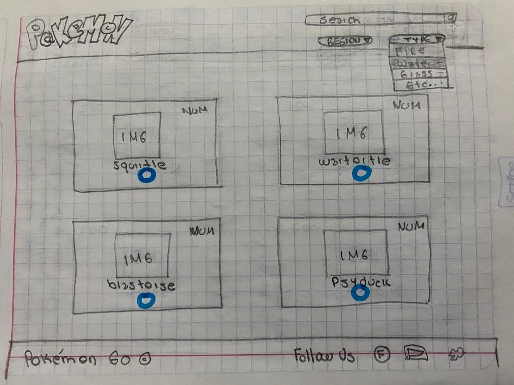 POKEMON
Search
REGION
TYPE
FIRE
Water
Grass
Etc...
NUM
IMG
Squirtle
NUM
IMG
wartortle
NUM
IMG
blastoise
NUM
IMG
Psyduck
Pokémon GO ©
Follow Us F